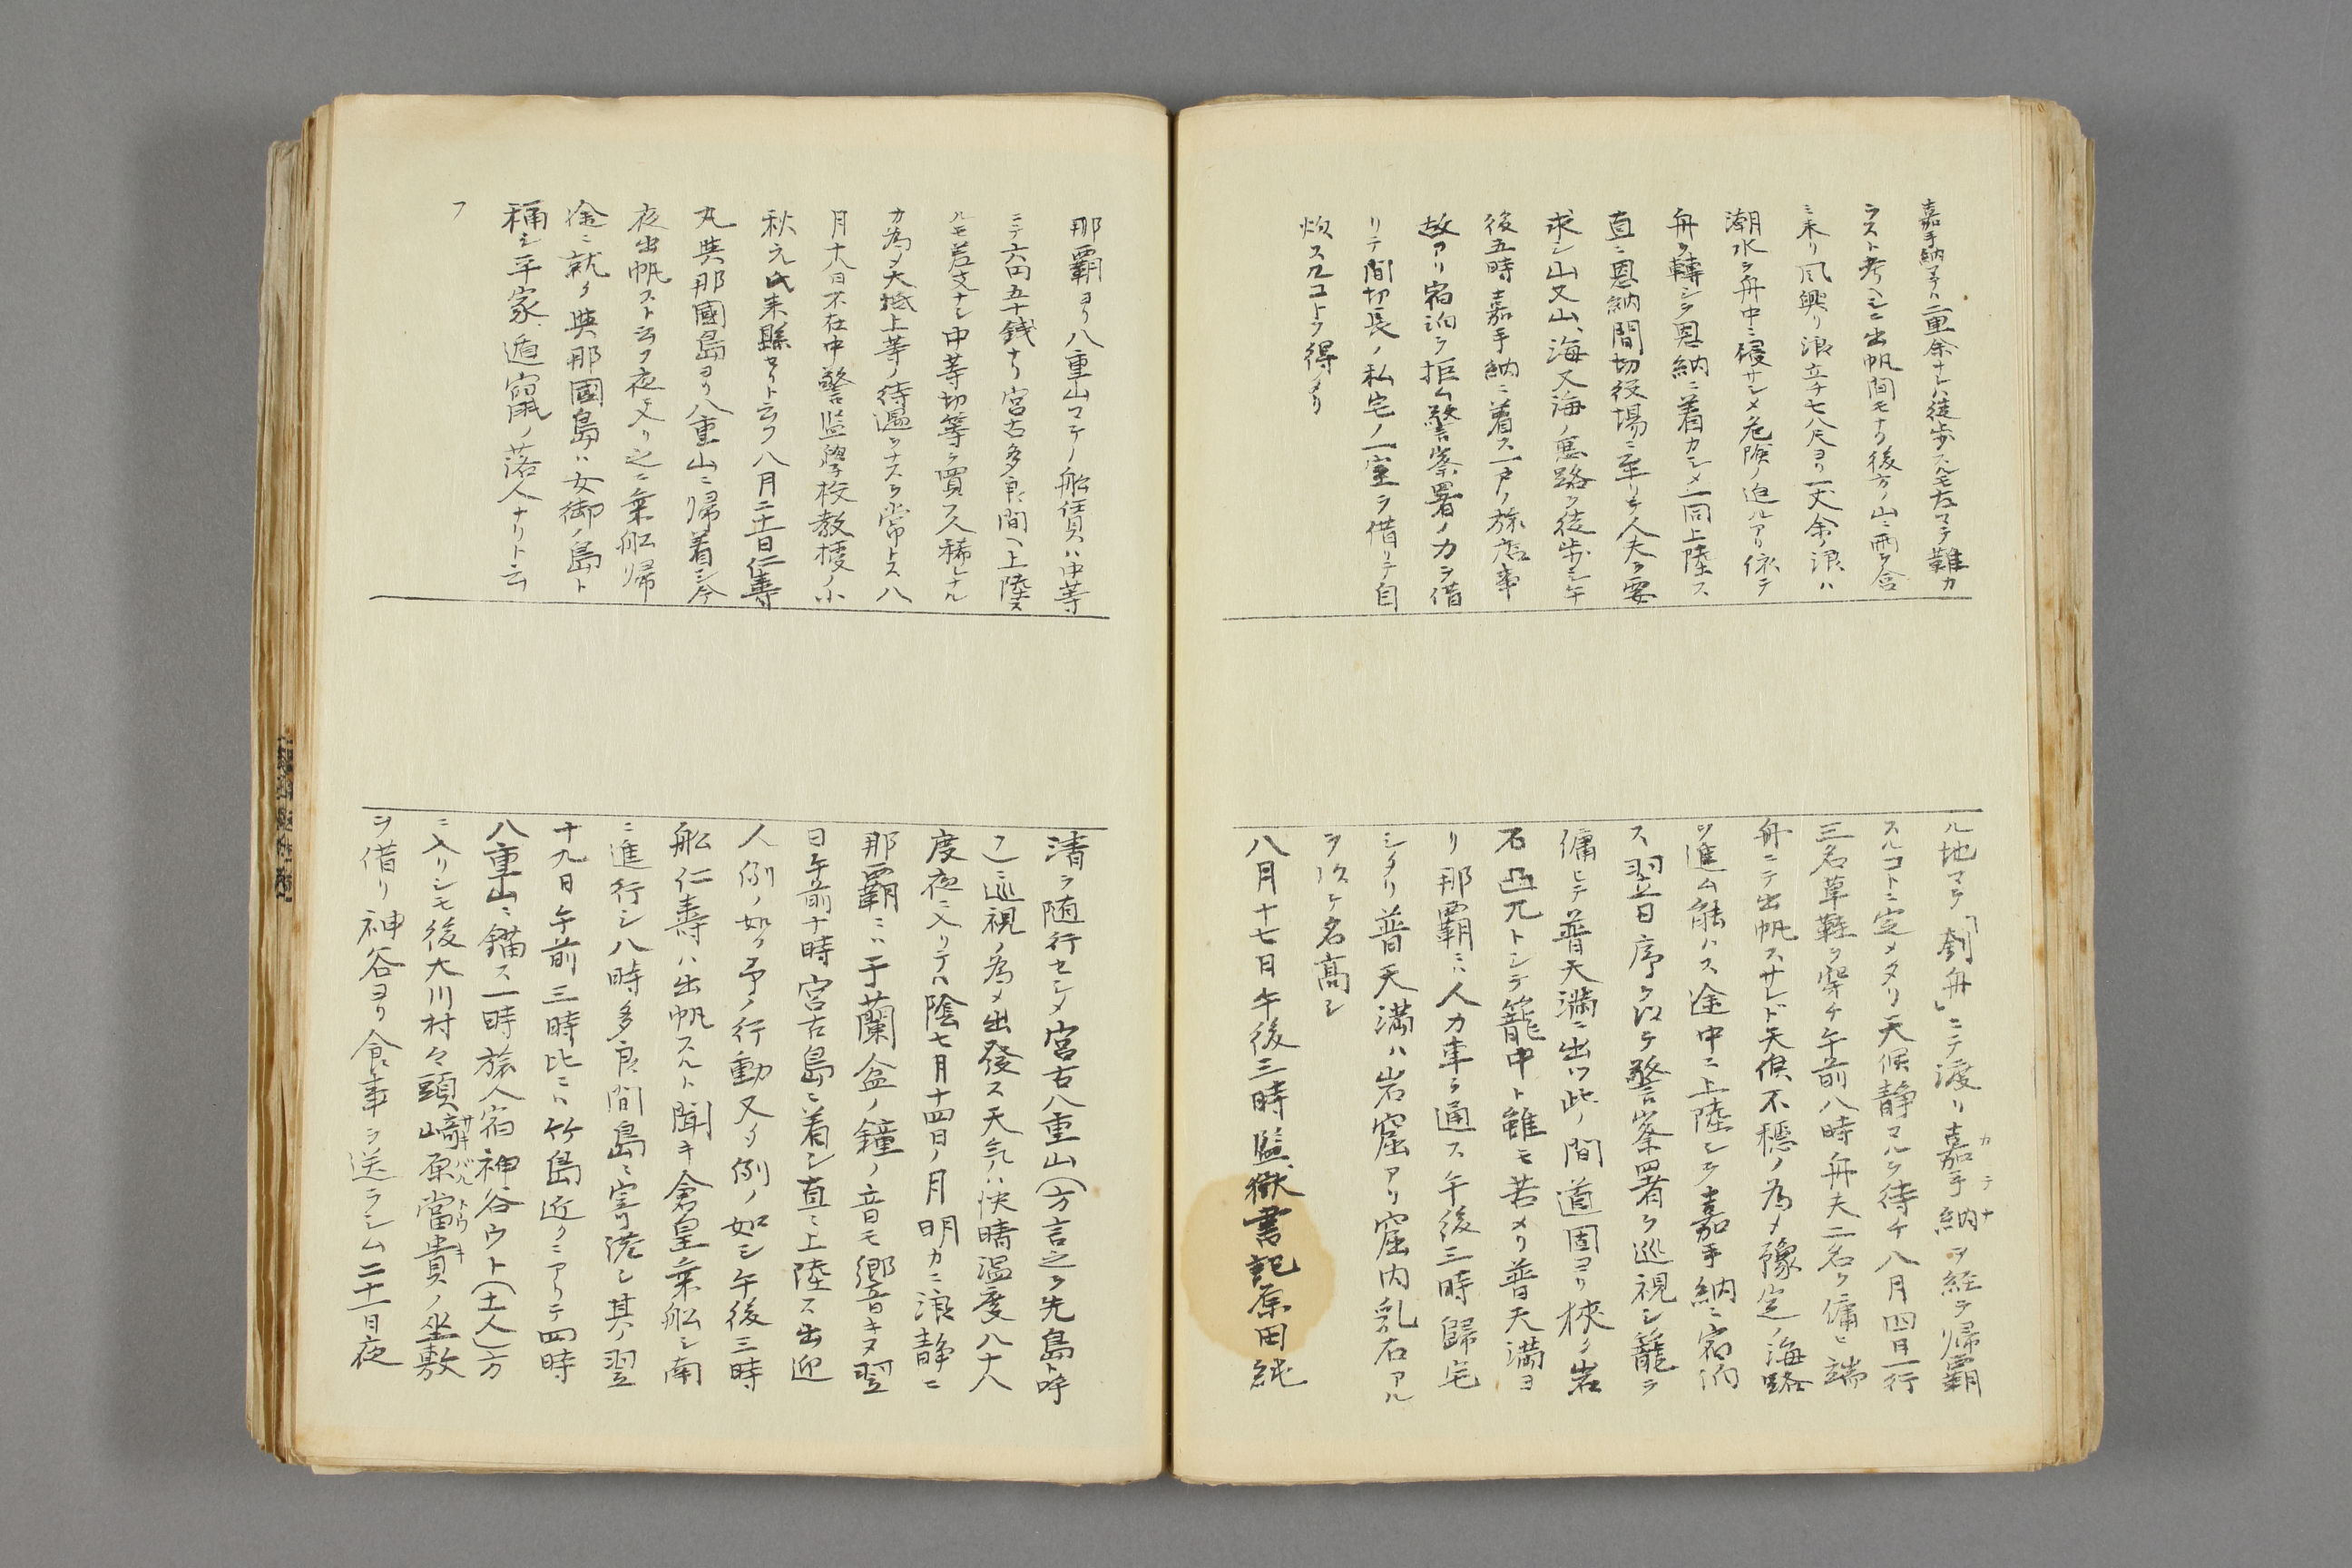 嘉手納マテハ二里余ナレハ徒歩スルモ左マテ難カ
ラスト考ヘシニ出帆間モナク後方ノ山ニ雨ヲ含
ミ来リ風興リ浪立チ七八尺ヨリ一丈余ノ浪ハ
潮水ヲ舟中ニ寝サシメ危険ノ迫ルアリ依テ
舟ヲ轉シテ恩納ニ着カシメ一同上陸ス
直ニ恩納間切役場ニ至リモ人夫ヲ要
求シ山又山、海又海ノ悪路ヲ徒歩シ午
後五時嘉手納ニ着ス一戸ノ旅店事
故アリ宿泊ヲ拒ム警察署ノ力ヲ借
リテ間切長ノ私宅ノ一室ヲ借リテ自
炊スルコトヲ得タリ
ル地マテ「刳舟」ニテ渡リ嘉手納ヲ経テ帰覇
カテナ
スルコトニ定メタリ天候静マルヲ待チ八月四日一行
三名草鞋ヲ穿チ午前八時舟夫二名ヲ傭ヒ端
舟ニテ出帆スサレド天候不穏ノ為メ豫定ノ海路
ヲ進ム能ハス途中ニ上陸シテ嘉手納ニ宿泊
ス翌日序ヲ以テ警察署ヲ巡視シ籠ヲ
傭ヒテ普天満ニ出ツ此ノ間道固ヨリ狭ク岩
石凸兀トシテ籠中ト雖モ苦メリ普天満ヨ
リ那覇ニハ人力車ヲ通ス午後三時歸宅
シタリ普天満ハ岩窟アリ窟内乳石アル
ヲ以テ名高シ
八月十七日午後三時監獄書記原田純
那覇ヨリ八重山マテノ船賃ハ中等
ニテ六円五十銭ナリ宮古多良間ヘ上陸ス
ルモ差支ナシ中等切等ヲ買フ人稀レナル
カ為メ大抵上等ノ待遇ヲナスヲ常トス八
月十八日不在中警監學校教授ノ小
秋元氏来縣セリト云フ八月二十日仁壽
丸與那國島ヨリ八重山ニ帰着シ今
夜出帆スト云フ夜ニ入リ之ニ乗船帰
途ニ就ク與那國島ハ女御ノ島ト
稱シ平家遁竄ノ落人ナリト云
フ
清ヲ随行セシメ宮古八重山(方言之ヲ先島ト呼
フ)巡視ノ為メ出發ス天気ハ快晴温度八十八
度夜ニ入リテハ陰七月十四日ノ月明カニ浪静ニ
那覇ニハ于蘭盆ノ鐘ノ音モ響キタ翌
日午前十時宮古島ニ着シ直ニ上陸ス出迎
人例ノ如ク予ノ行動又タ例ノ如シ午後三時
船仁壽ハ出帆スルト聞キ倉皇乗船シ南
ニ進行シ八時多良間島ニ寄港シ其ノ翌
十九日午前三時比ニハ竹島近クニアリテ四時
八重山ニ錨ス一時旅人宿神谷ウト(土人)方
ニ入リシモ後大川村々頭﨑原當貴ノ坐敷
サキバル トウキ
ヲ借リ神谷ヨリ食事ヲ送ラシム二十一日夜